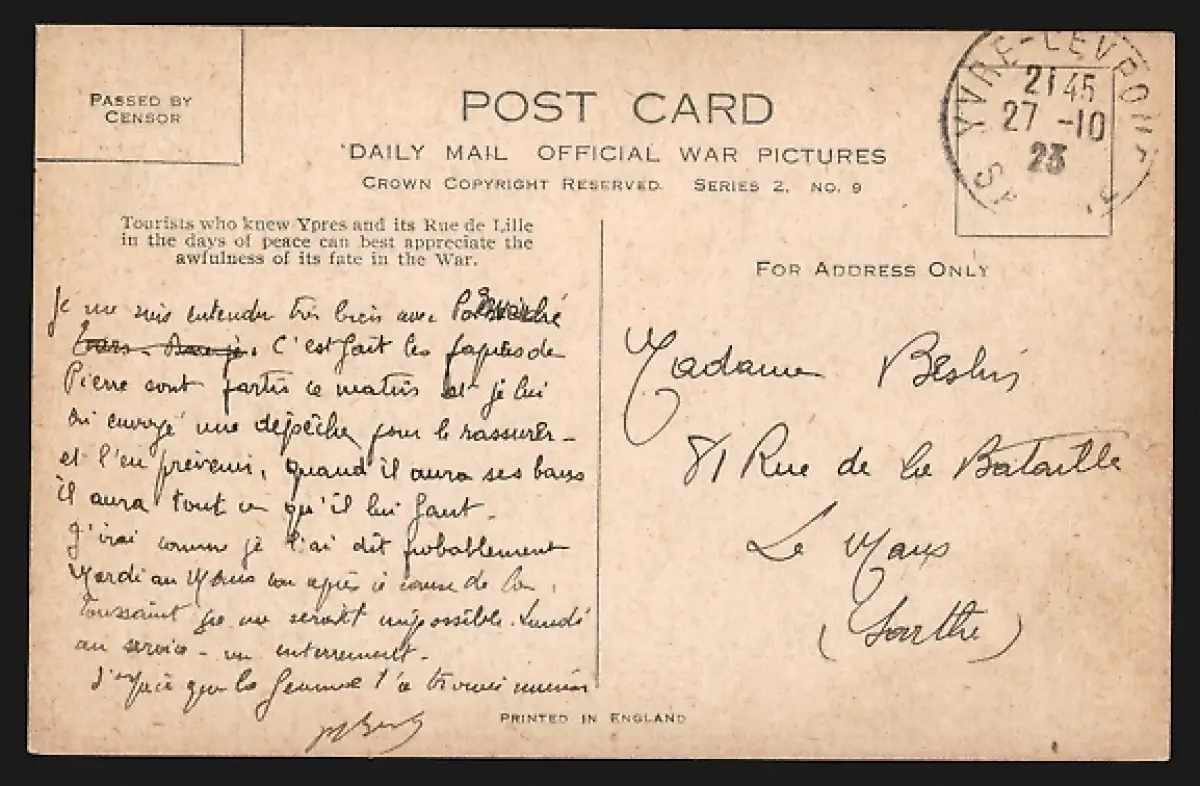 PASSED BY
CENSOR
POST CARD
'DAILY MAIL OFFICIAL WAR PICTURES
CROWN COPYRIGHT RESERVED. SERIES 2. NO. 9
YVRE-L'EVEQUE
21 45
27 -10
23
Tourists who knew Ypres and its Rue de Lille
in the days of peace can best appreciate the
awfulness of its fate in the War.
FOR ADDRESS ONLY
Je me suis entendu très bien avec
C'est fait les papiers de
Pierre sont partis ce matin et je lui
ai envoyé une dépêche pour le rassurer -
et l'en prévenir, quand il aura ses bans
il aura tout ce qu'il lui faut -
J'irai comme je l'ai dit probablement
Mardi au Mans car après à cause de la
Toussaint ça me serait impossible. Lundi
au service - un enterrement -
J'espère que la femme t'a trouvé
Madame
81 Rue de la Bataille
Le Mans
(Sarthe)
PRINTED IN ENGLAND